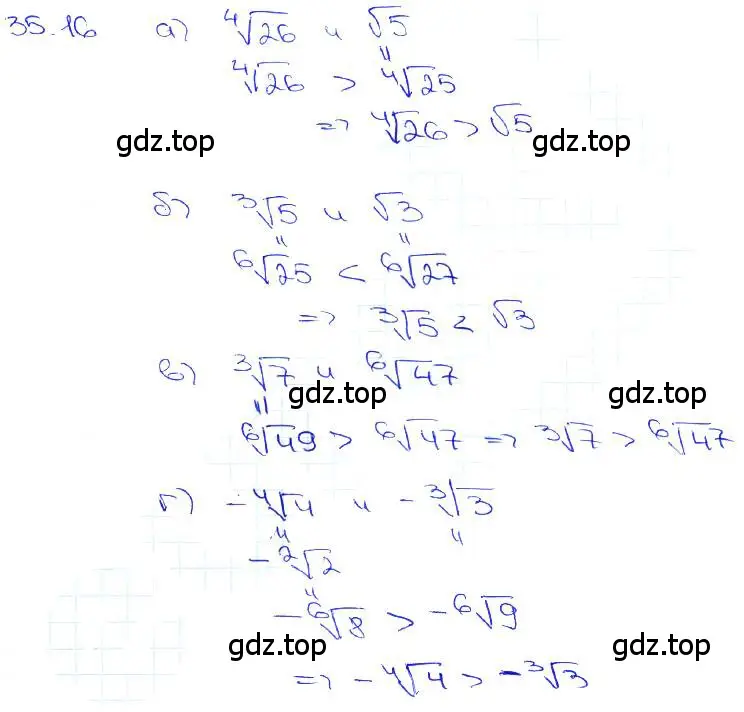 35.16 а) ⁴√26 и √5
॥
⁴√26 > ⁴√25
=> ⁴√26 > √5
gdz.top gdz.top
б) ³√5 и √3
॥ ॥
⁶√25 < ⁶√27
=> ³√5 < √3
в) ³√7 и ⁶√47
gdz.top gdz.top
॥
⁶√49 > ⁶√47 => ³√7 > ⁶√47
г) -⁴√4 и -³√3
॥ ॥
-²√2
॥
-⁶√8 > -⁶√9
gdz.top gdz.top
=> -⁴√4 > -³√3